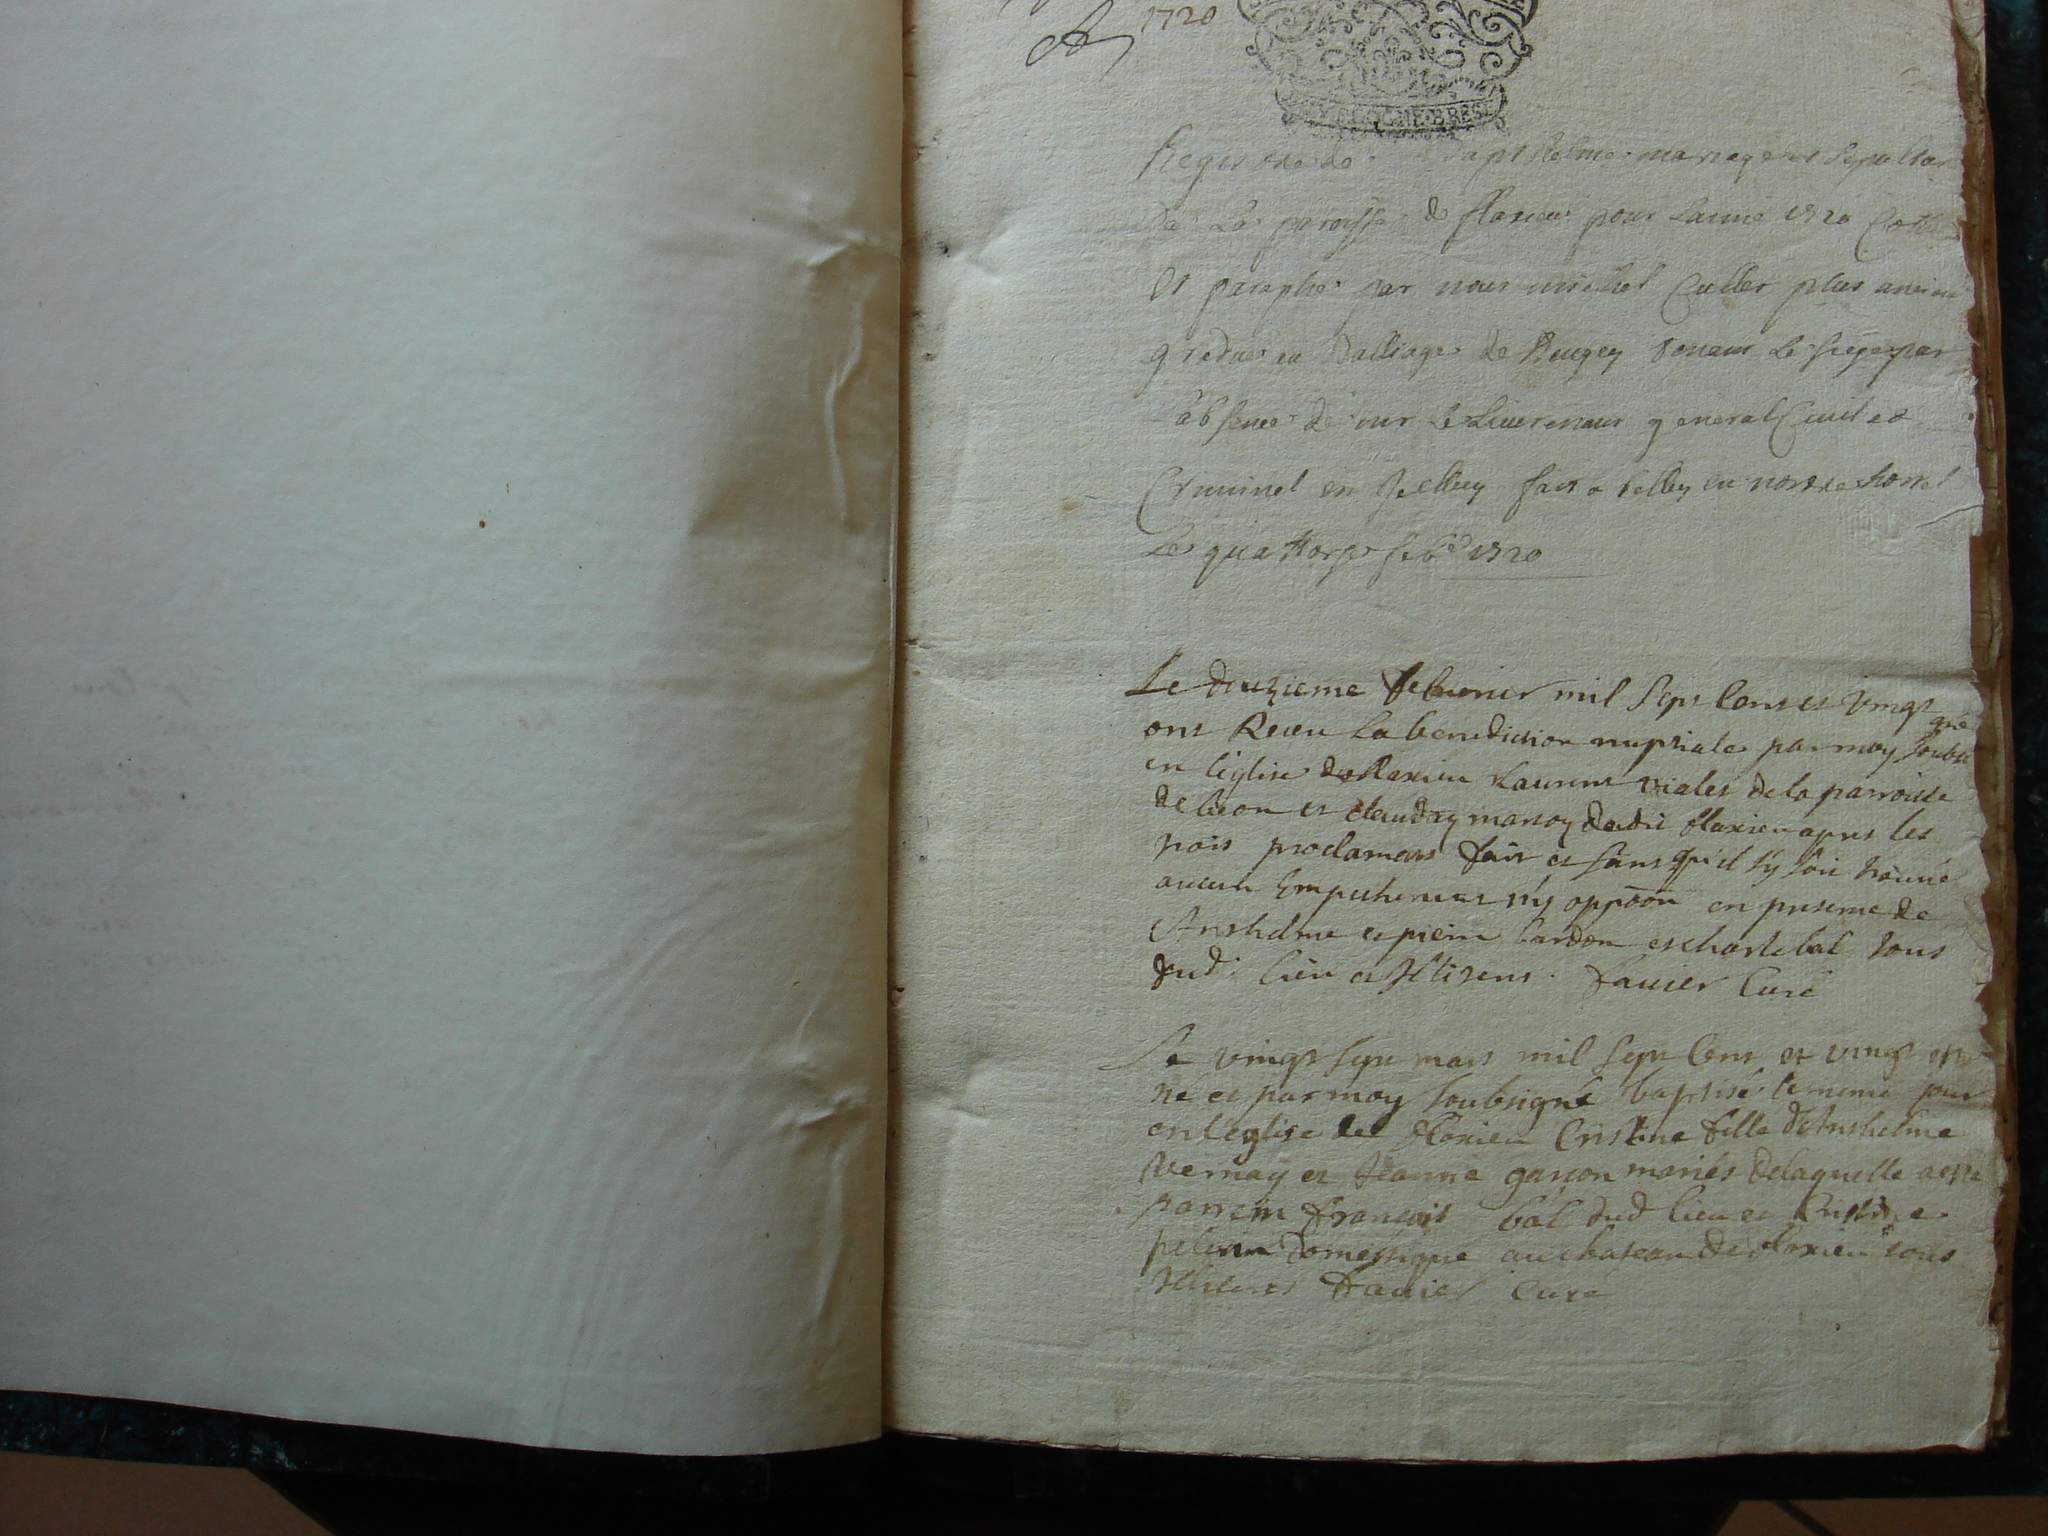 1720
GOGNE·BRES
Registre de baptesmes mariages et sepultur
De La paroisse de flaxieu pour Lanné 1720 Cotté
Et paraphé par nous michel Cullet plus ancien
gradué au Balliage de Beugey tenant Le siege par
absence de mr Le Lieutenant general Civil et
Criminel en Jcelluy fait a belley en nostre hostel
Le quattorze feb 1720
Le deuzieme febvrier mil sept Cent et vingt
ont Receu La benediction nuptiale par moy soubsi gné
en l'eglise de flaxieu Laurent viales de la parroisse
de et claudy de dit flaxieu apres les
trois proclamats fait et sans qu'il s'y soit trouvé
aucun Empechement ny oppoon en presence de
Anthelme et pierre bardon et charle bal tous
dud. lieu et Illiterés. favier Curé
Le vingt sept mars mil sept Cent et vingt est
né et par moy soubsigné baptisé le meme jour
en l'eglise de flaxieu Cristine fille d'Anthelme
vernay et Jeanne garson mariés de laquelle a esté
parrein francois bal dud lieu et Cristine
domestique au chateau de flaxieu tous
Illiterés favier Curé